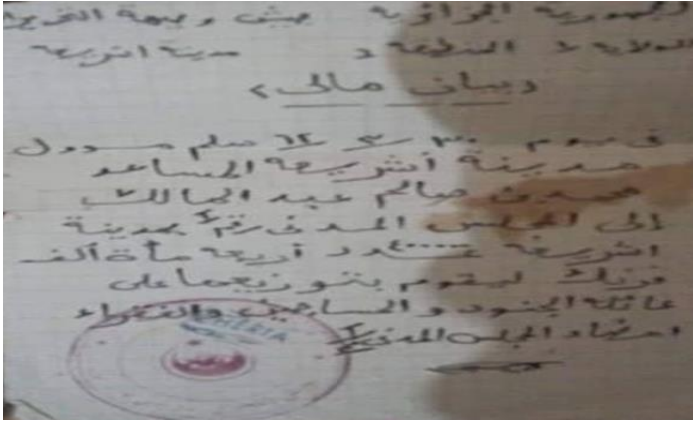 الجمهورية الجزائرية جيش وجبهة التحرير
الولاية 1 المنطقة 5 مدينة الشريعة
( بيان مالي )
في يوم 30 / 3 / 62 سلم مسؤول
مدينة الشريعة المساعد
محمد بن صالح عبد المالك
إلى المجلس المدني رقم 4 بمدينة
الشريعة عدد 400000 أربعة مأة ألف
فرنك ليقوم بتوزيعها على
عائلة الجنود والمساجين والفقراء
امضاء المجلس المدني 4
ALGERIA